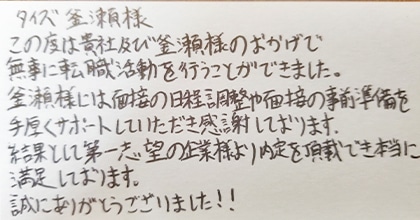 タイズ 釜瀬様
この度は貴社及び釜瀬様のおかげで
無事に転職活動を行うことができました。
釜瀬様には面接の日程調整や面接の事前準備を
手厚くサポートしていただき感謝しております.
結果として第一志望の企業様より内定を頂載でき本当に
満足しております。
誠にありがとうございました!!